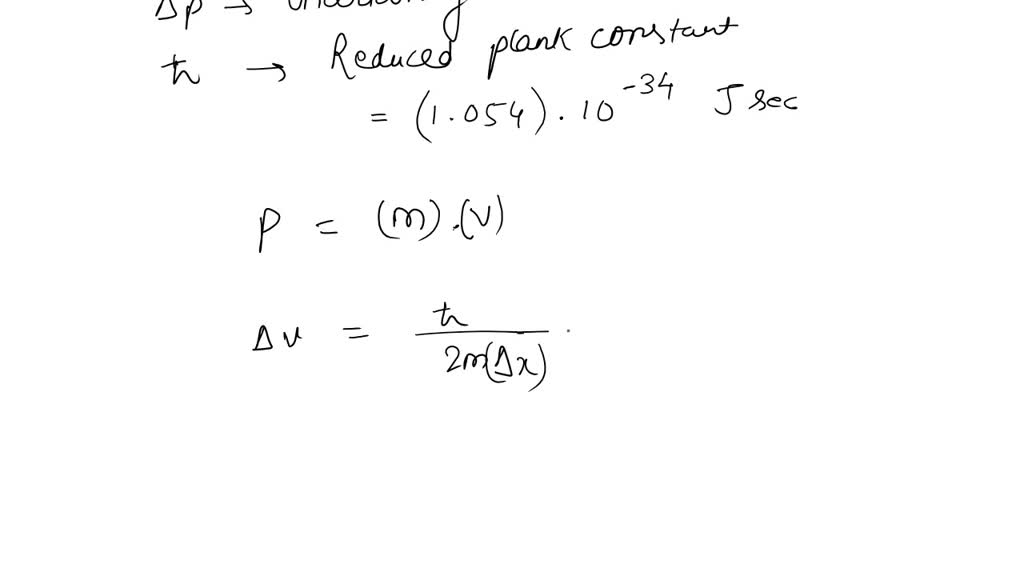 Δp →
ħ → Reduced plank constant
= (1.054).10^-34 J sec
P = (m).(v)
Δv = ħ / 2m(Δx)